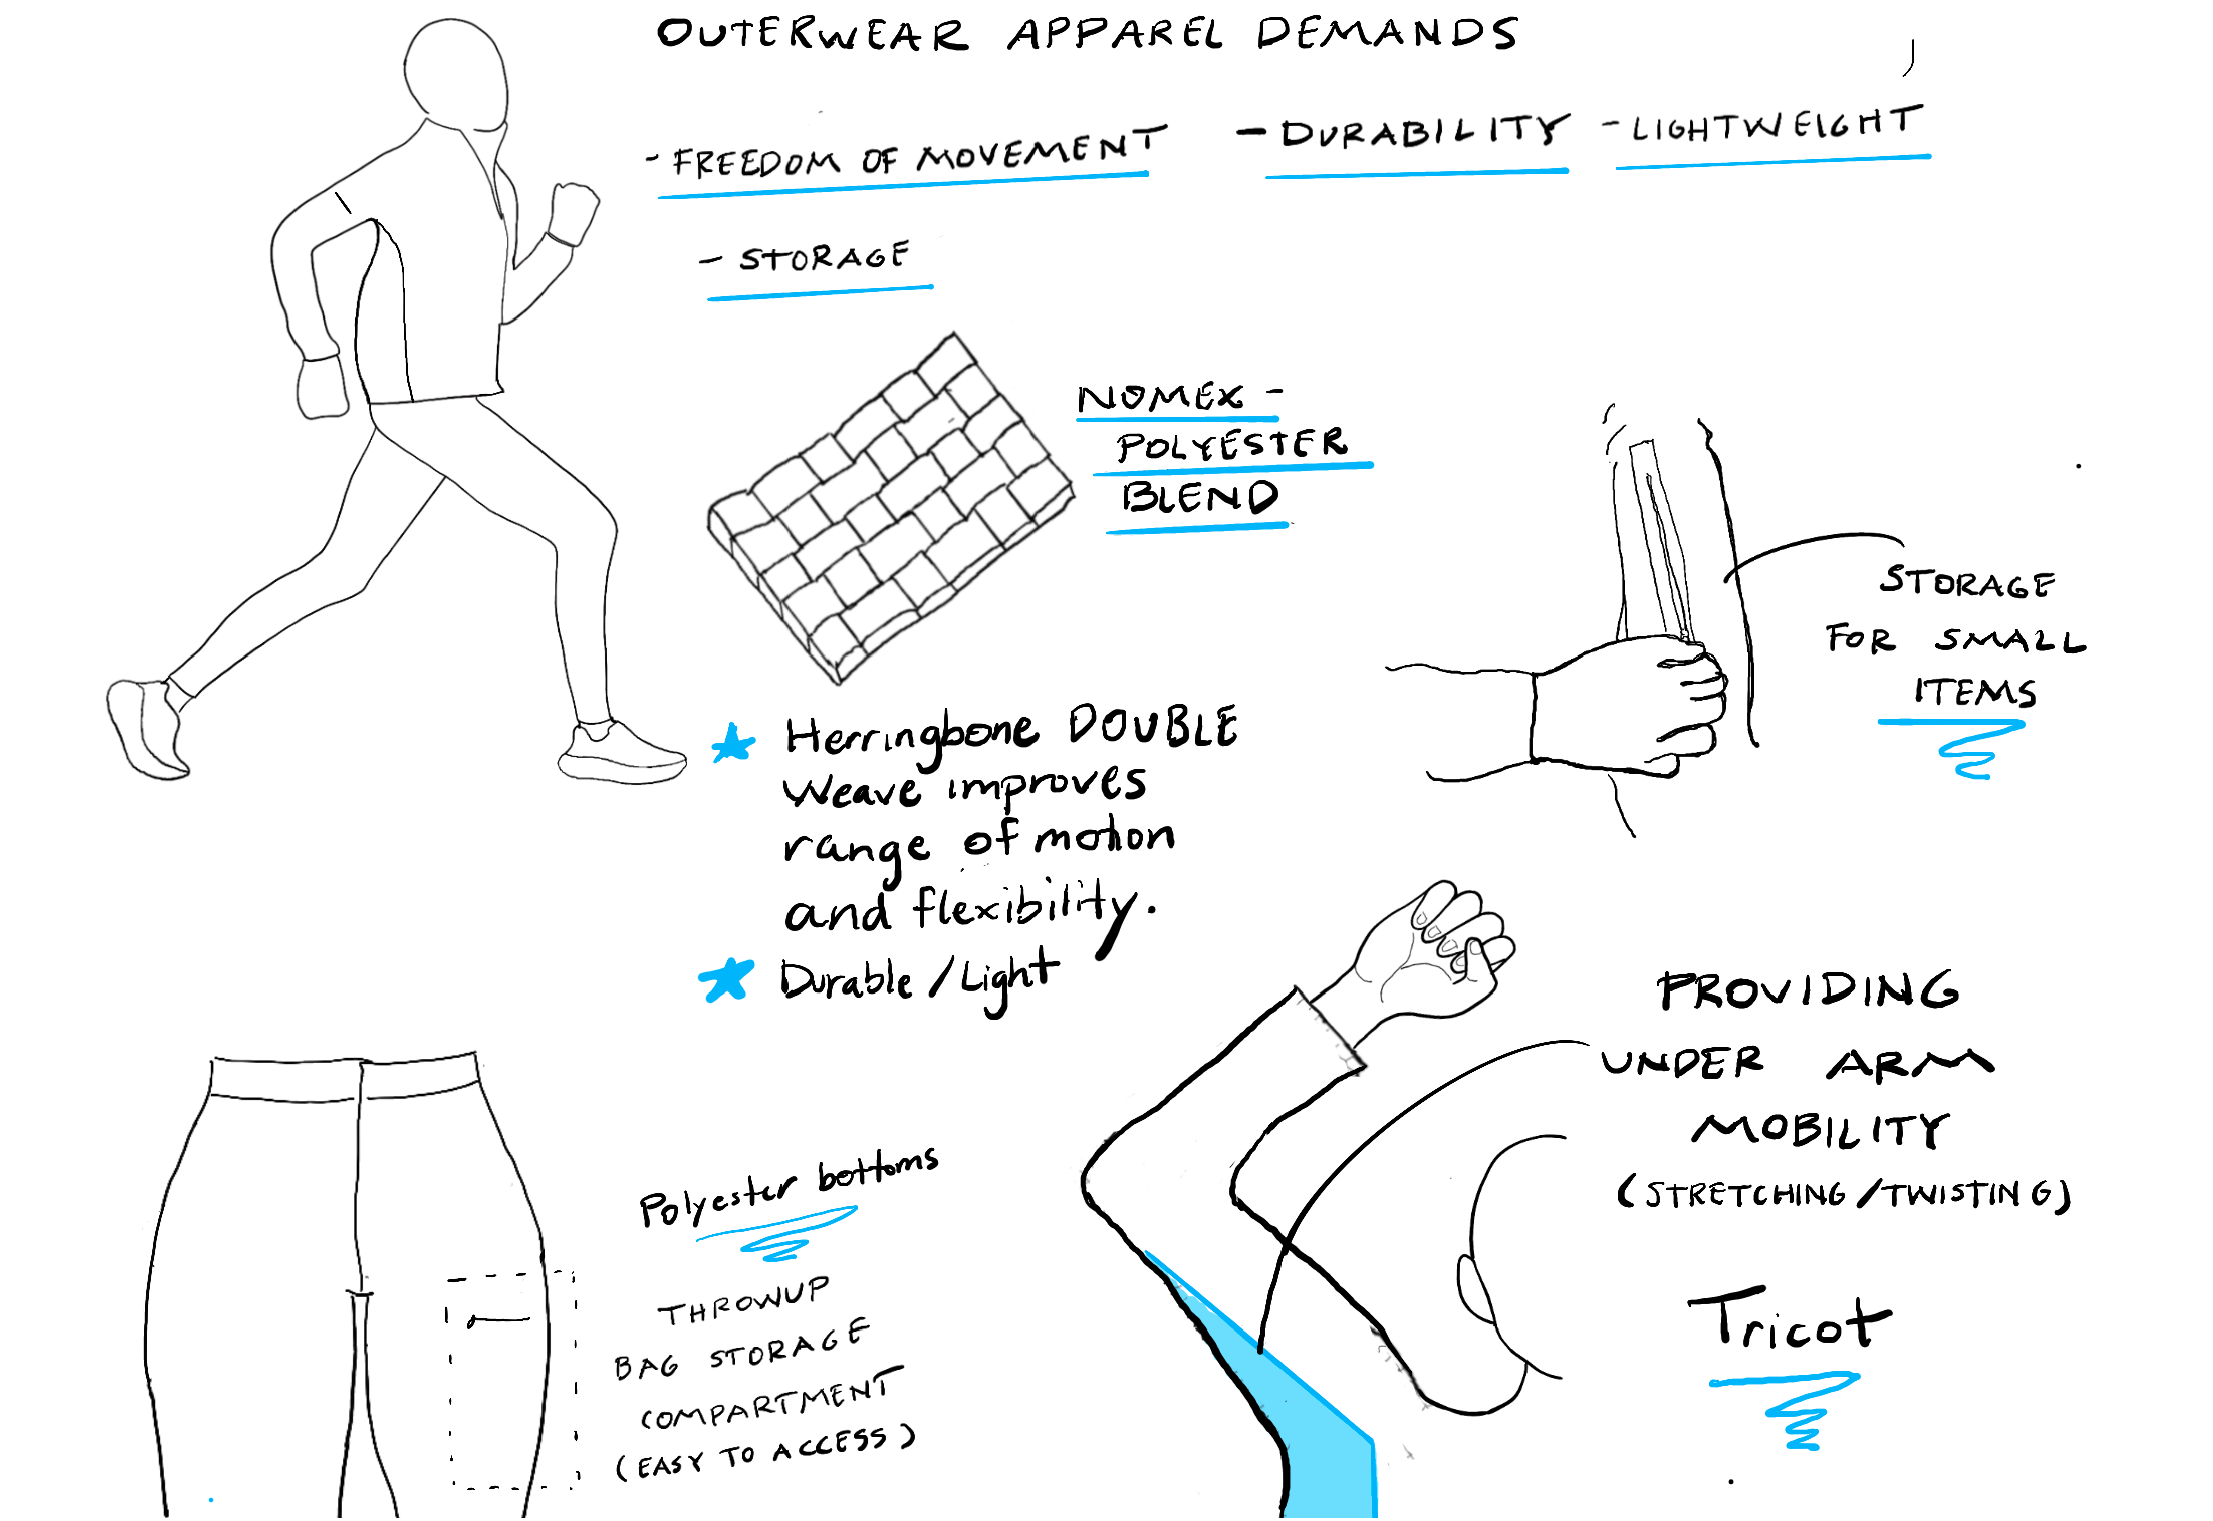 OUTERWEAR APPAREL DEMANDS
- FREEDOM OF MOVEMENT
- DURABILITY
- LIGHTWEIGHT
- STORAGE
NOMEX -
POLYESTER
BLEND
STORAGE
FOR SMALL
ITEMS
Herringbone DOUBLE
Weave improves
range of motion
and flexibility.
Durable / Light
PROVIDING
UNDER ARM
MOBILITY
(STRETCHING/TWISTING)
Tricot
Polyester bottoms
THROWUP
BAG STORAGE
COMPARTMENT
(EASY TO ACCESS)